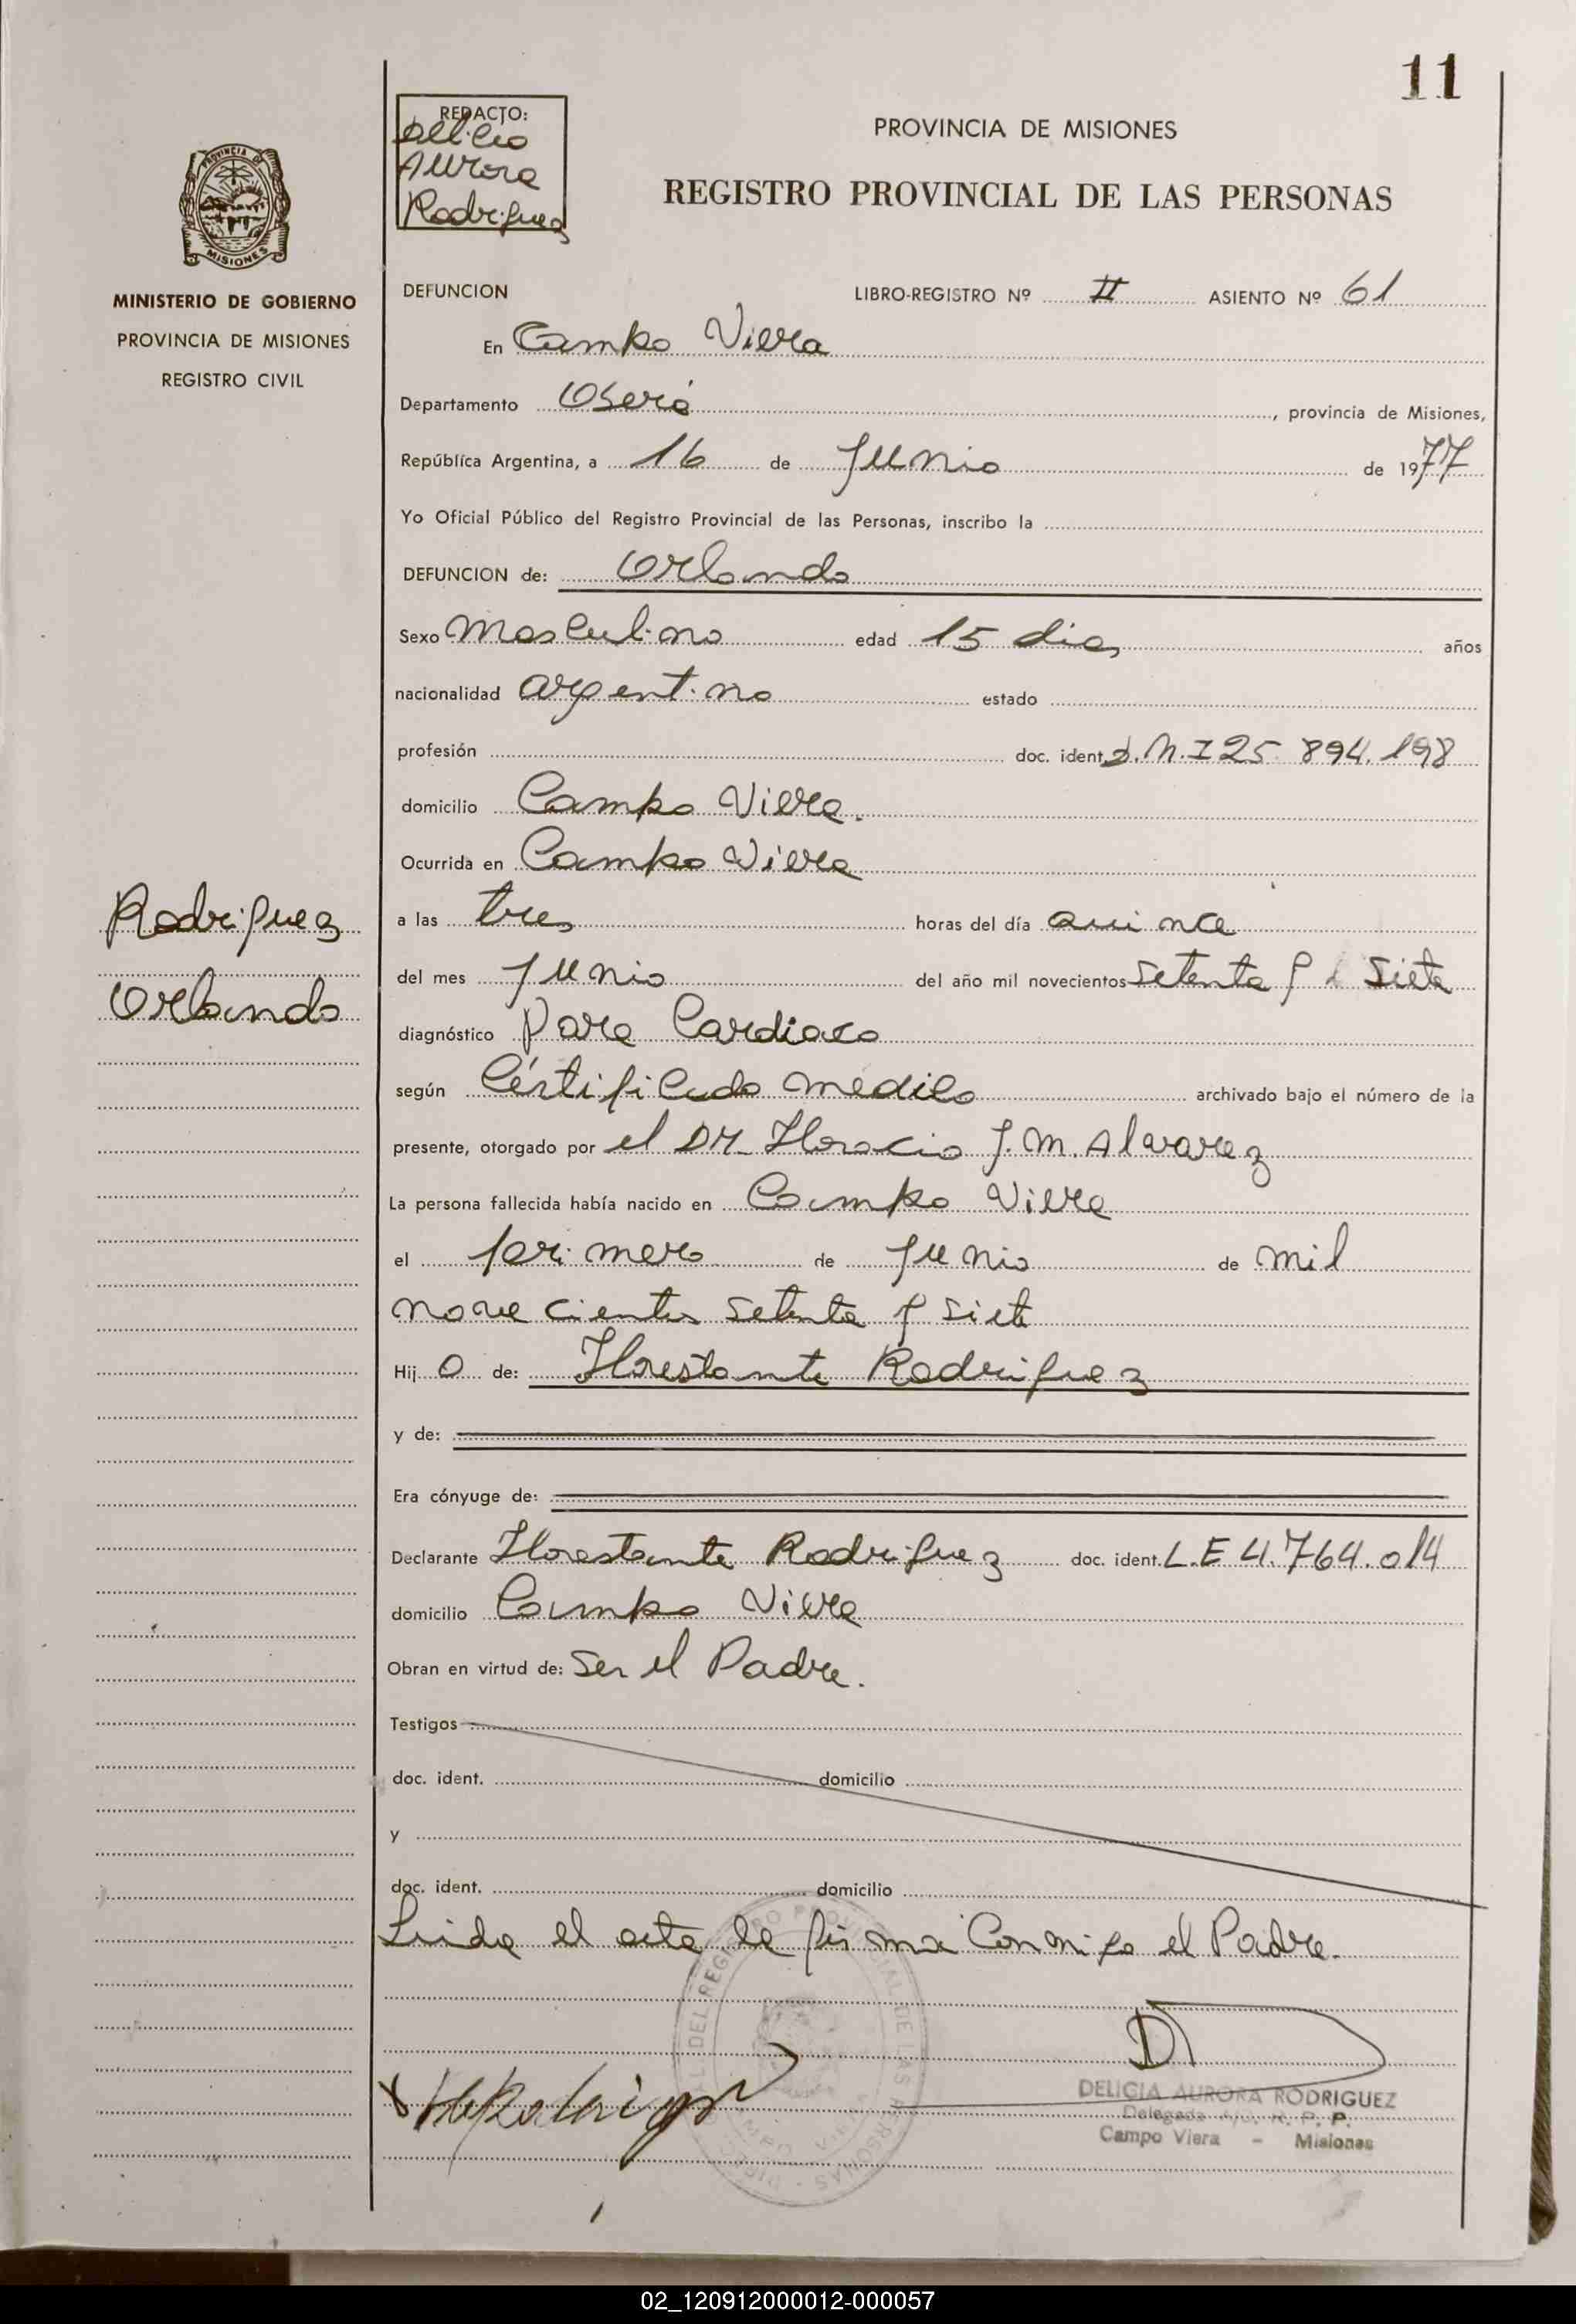 11
REDACTO:
Delicia
Aurora
Rodriguez
PROVINCIA DE MISIONES
REGISTRO PROVINCIAL DE LAS PERSONAS
PROVINCIA DE
MISIONES
MINISTERIO DE GOBIERNO
PROVINCIA DE MISIONES
REGISTRO CIVIL
DEFUNCION LIBRO-REGISTRO Nº II ASIENTO Nº 61
En Campo Viera
Departamento Oberá, provincia de Misiones,
República Argentina, a 16 de Junio de 1977
Yo Oficial Público del Registro Provincial de las Personas, inscribo la
DEFUNCION de: Orlando
Sexo Masculino edad 15 dias años
nacionalidad argentino estado
profesión doc. ident. D.N.I 25.894.198
domicilio Campo Viera.
Ocurrida en Campo Viera
Rodriguez
Orlando
a las tres horas del día quince
del mes Junio del año mil novecientos Setenta y Siete
diagnóstico Paro Cardiaco
según Certificado medico archivado bajo el número de la
presente, otorgado por el DR. Horacio J. M. Alvarez
La persona fallecida había nacido en Campo Viera
el primero de Junio de mil
novecientos setenta y siete
Hij o de: Florestante Rodriguez
y de:
Era cónyuge de:
Declarante Florestante Rodriguez doc. ident. L.E 4.764.014
domicilio Campo Viera
Obran en virtud de: Ser el Padre.
Testigos
doc. ident. domicilio
y
doc. ident. domicilio
Leida el acta la firma Conmigo el Padre.
DELICIA AURORA RODRIGUEZ
Delegada R. P. P.
Campo Viera - Misiones
02_120912000012-000057